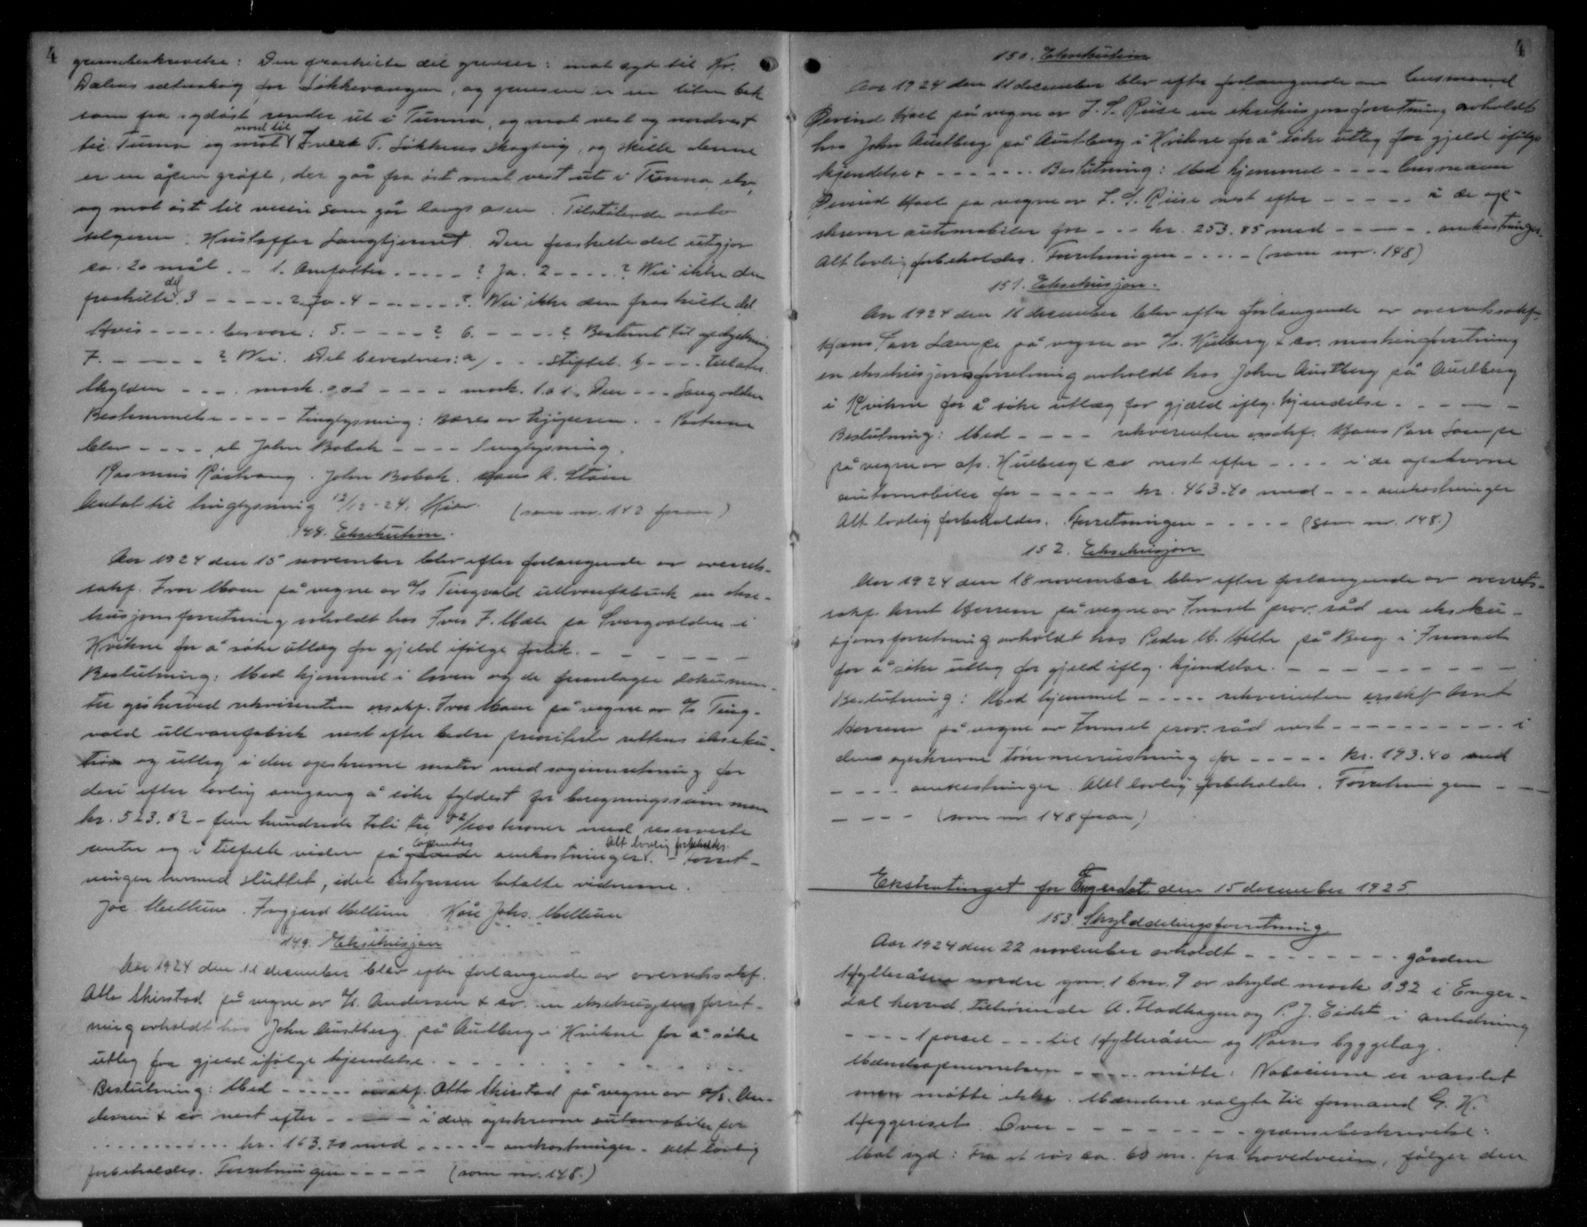 4
grensebeskrivelse: Den fraskilte del grenser: mot syd til Kr.
Dalens sætreskog for Løkkevangen, og grensen er en liten bek
som fra sydøst render ut i Tunna, og mot vest og nordvest
til Tunna og mot nord til Iverk T. Løkkens skogteig, og skille denne
er en åpen grøft, der går fra øst mot vest ut i Tunna elv,
og mot øst til veien som går langs åsen. Tilstøtende nabo
selgeren. Kristoffer Langtjernet. Den fraskilte del utgjør
ca. 20 mål. - 1. Anfatter - - - - - ? Ja. 2 - - - - ? Nei ikke den
fraskilte del. 3 - - - - - ? Ja. 4 - - - - - ?. Nei ikke den fraskilte del
Hvis - - - - besvare: 5. - - - - ? 6. - - - - ? Bestemt til opdyrkning
7. - - - - ? Nei. Det bevidnes: a) - - - stiftet. b - - - - tillates.
Skylden - - - . mark. 0,02 - - - - mark. 1.01. Den - - - Langvolden
Bestemmelse - - - - tinglysning: Bæres av kjøperen. - Partene
blev - - - - at John Bobak - - - - tinglysning.
Rasmus Råstvang. John Bobak. Hans A. Støen
Antat til tinglysning 12/12-24. (som nr. 142 foran)
148. Eksekution.
Aar 1924 den 15 november blev efter forlangende av overrets-
sakf. Ivar Moen på vegne av A/s Tingvold ullvarefabrik en ekse-
kusjonsforretning avholdt hos Iver F. Mæle på Svergvolden i
Kvikne for å søke utlæg for gjeld ifølge forlik. - - - - - -
Beslutning: Med hjemmel i loven og de fremlagte dokumen-
ter gishervd rekvirenten orsakf. Ivar Moen på vegne av A/s Ting-
vold ullvarefabrik nest efter bedre prioriterte rettens ekseku-
tion og utlæg i den opskrevne motor med saginnretning for
deri efter lovlig omgang å søke fyldest for beregningssummen
kr. 523.82 - fem hundrede tyve tre 82/100 kroner med reserverte
renter og i tilfelle videre påløpendes omkostninger. Alt lovlig forbeholdes. Forret-
ningen hermed sluttet, idet bestyreren betalte vidnerne.
Joc. Mellum. Ingjerd Mellum. Kåre Johs. Mellum
149. Eksekusjon
Aar 1924 den 11 december blev efter forlangende av overretssakf.
Otto Skirstad på vegne av A/s. Andersen & co. en eksekusjons forret-
ning avholdt hos John Austberg på Austberg i Kvikne for å søke
utlæg for gjeld ifølge kjendelse. - - - - - - - - -
Beslutning: Med - - - - - orsakf. Otto Skirstad på vegne av A/s. An-
dersen & co nest efter - - - - - i den opskrevne automobiler for
- - - - - - - - - kr. 163.70 med - - - - - omkostninger. Alt lovlig
forbeholdes. Forretningen - - - - - (som nr. 148.)
4
150. Eksekution
Aar 1924 den 11 december blev efter forlangende av lensmand
Øivind Hoel på vegne av J. S. Riise en eksekusjonsforretning avholdt
hos John Austberg på Austberg i Kvikne for å søke utlæg for gjeld ifølge
kjendelse. - - - - - - - Beslutning: Med hjemmel - - - - lensmann
Øivind Hoel på vegne av J. S. Riise nest efter - - - - - i de op-
skrevne automobiler for - - - kr. 253.85 med - - - - - omkostninger.
Alt lovlig forbeholdes. Forretningen - - - - - (som nr. 148)
151. Eksekusjon.
Aar 1924 den 11 december blev efter forlangende av overretssakf.
Hans Parr Lampe på vegne av A/s. Hulberg & co. maskinforretning
en eksekusjonsforretning avholdt hos John Austberg på Austberg
i Kvikne for å søke utlæg for gjæld iflg. kjendelse - - - - -
Beslutning: Med - - - - rekvirenten orsakf. Hans Parr Lampe
på vegne av A/s. Hulberg & co nest efter - - - - i de opskrevne
automobiler for - - - - - kr. 463.70 med - - - omkostninger
Alt lovlig forbeholdes. Forretningen - - - - - (som nr. 148.)
152. Eksekusjon
Aar 1924 den 18 november blev efter forlangende av overrets-
sakf. Arnt Herrem på vegne av Innset prov. råd en ekseku-
sjonsforretning avholdt hos Peder M. Melte på Berg i Innset
for å søke utlæg for gjeld iflg. kjendelse. - - - - - - - - -
Beslutning: Med hjemmel - - - - - rekvirenten orsakf. Arnt
Herrem på vegne av Innset prov. råd nest - - - - - - - - - i
den opskrevne tømmerrustning for - - - - - kr. 193.40 med
- - - - omkostninger. Alt lovlig forbeholdes. Forretningen - -
- - - - (som nr. 148 foran)
Ekstratinget for Engerdal den 15 december 1925
153. Skylddelingsforretning
Aar 1924 den 22 november avholdt - - - - - - - - gården
Hylleråsen nordre gnr. 1 bnr. 9 av skyld mark 0.32 i Enger-
dal herred, tilhørende A. Flodhagen og P. J. Eidet i anledning
- - - - 1 parsel - - - til Hylleråsen og Roens byggelag.
Mændsopnevnelsen - - - - - møtte: Naboeierne er varslet
men møtte ikke. Mændene valgte til formand G. K.
Heggeriset. Over - - - - - - - - grænsebeskrivelse:
Mot syd: Fra et røis ca. 60 m. fra hovedveien, følger den